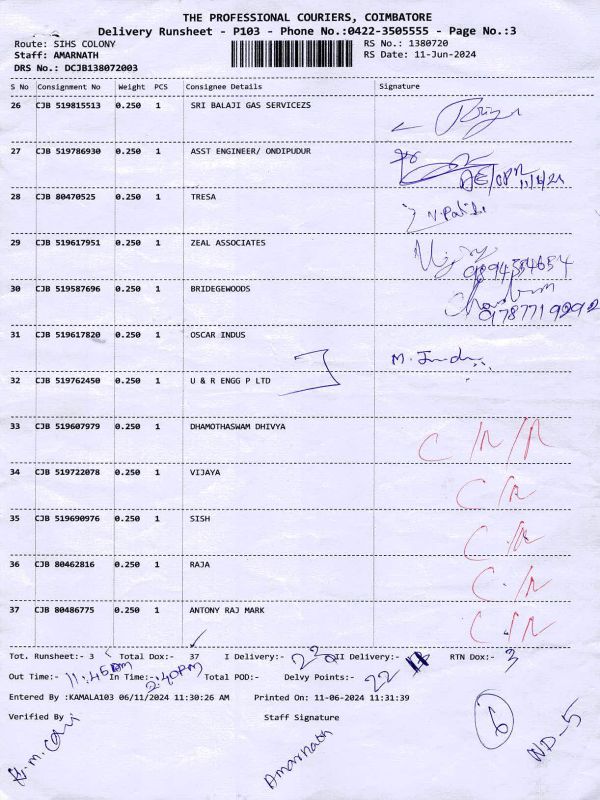 THE PROFESSIONAL COURIERS, COIMBATORE
Delivery Runsheet - P103 - Phone No.:0422-3505555 - Page No.:3
Route: SIHS COLONY RS No.: 1380720
Staff: AMARNATH RS Date: 11-Jun-2024
DRS No.: DCJB138072003
S No Consignment No Weight PCS Consignee Details Signature
26 CJB 519815513 0.250 1 SRI BALAJI GAS SERVICEZS
27 CJB 519786930 0.250 1 ASST ENGINEER/ ONDIPUDUR
AE/OPR 11/6/24
28 CJB 80470525 1 TRESA
29 CJB 519617951 0.250 1 ZEAL ASSOCIATES
9894554654
30 CJB 519587696 0.250 1 BRIDEGEWOODS
31 CJB 519617820 0.250 1 OSCAR INDUS
32 CJB 519762450 0.250 1 U & R ENGG P LTD
33 CJB 519607979 0.250 1 DHAMOTHASWAM DHIVYA
34 CJB 519722078 0.250 1 VIJAYA
35 CJB 519690976 0.250 1 SISH
36 CJB 80462816 0.250 1 RAJA
37 CJB 80486775 0.250 1 ANTONY RAJ MARK
Tot. Runsheet:- 3 Total Dox:- 37 I Delivery:- 22 II Delivery:- RTN Dox:- 3
Out Time:- 11:45AM In Time:- 2:40PM Total POD:- Delvy Points:- 22
Entered By :KAMALA103 06/11/2024 11:30:26 AM Printed On: 11-06-2024 11:31:39
Verified By Staff Signature
Amarnath
ND-5